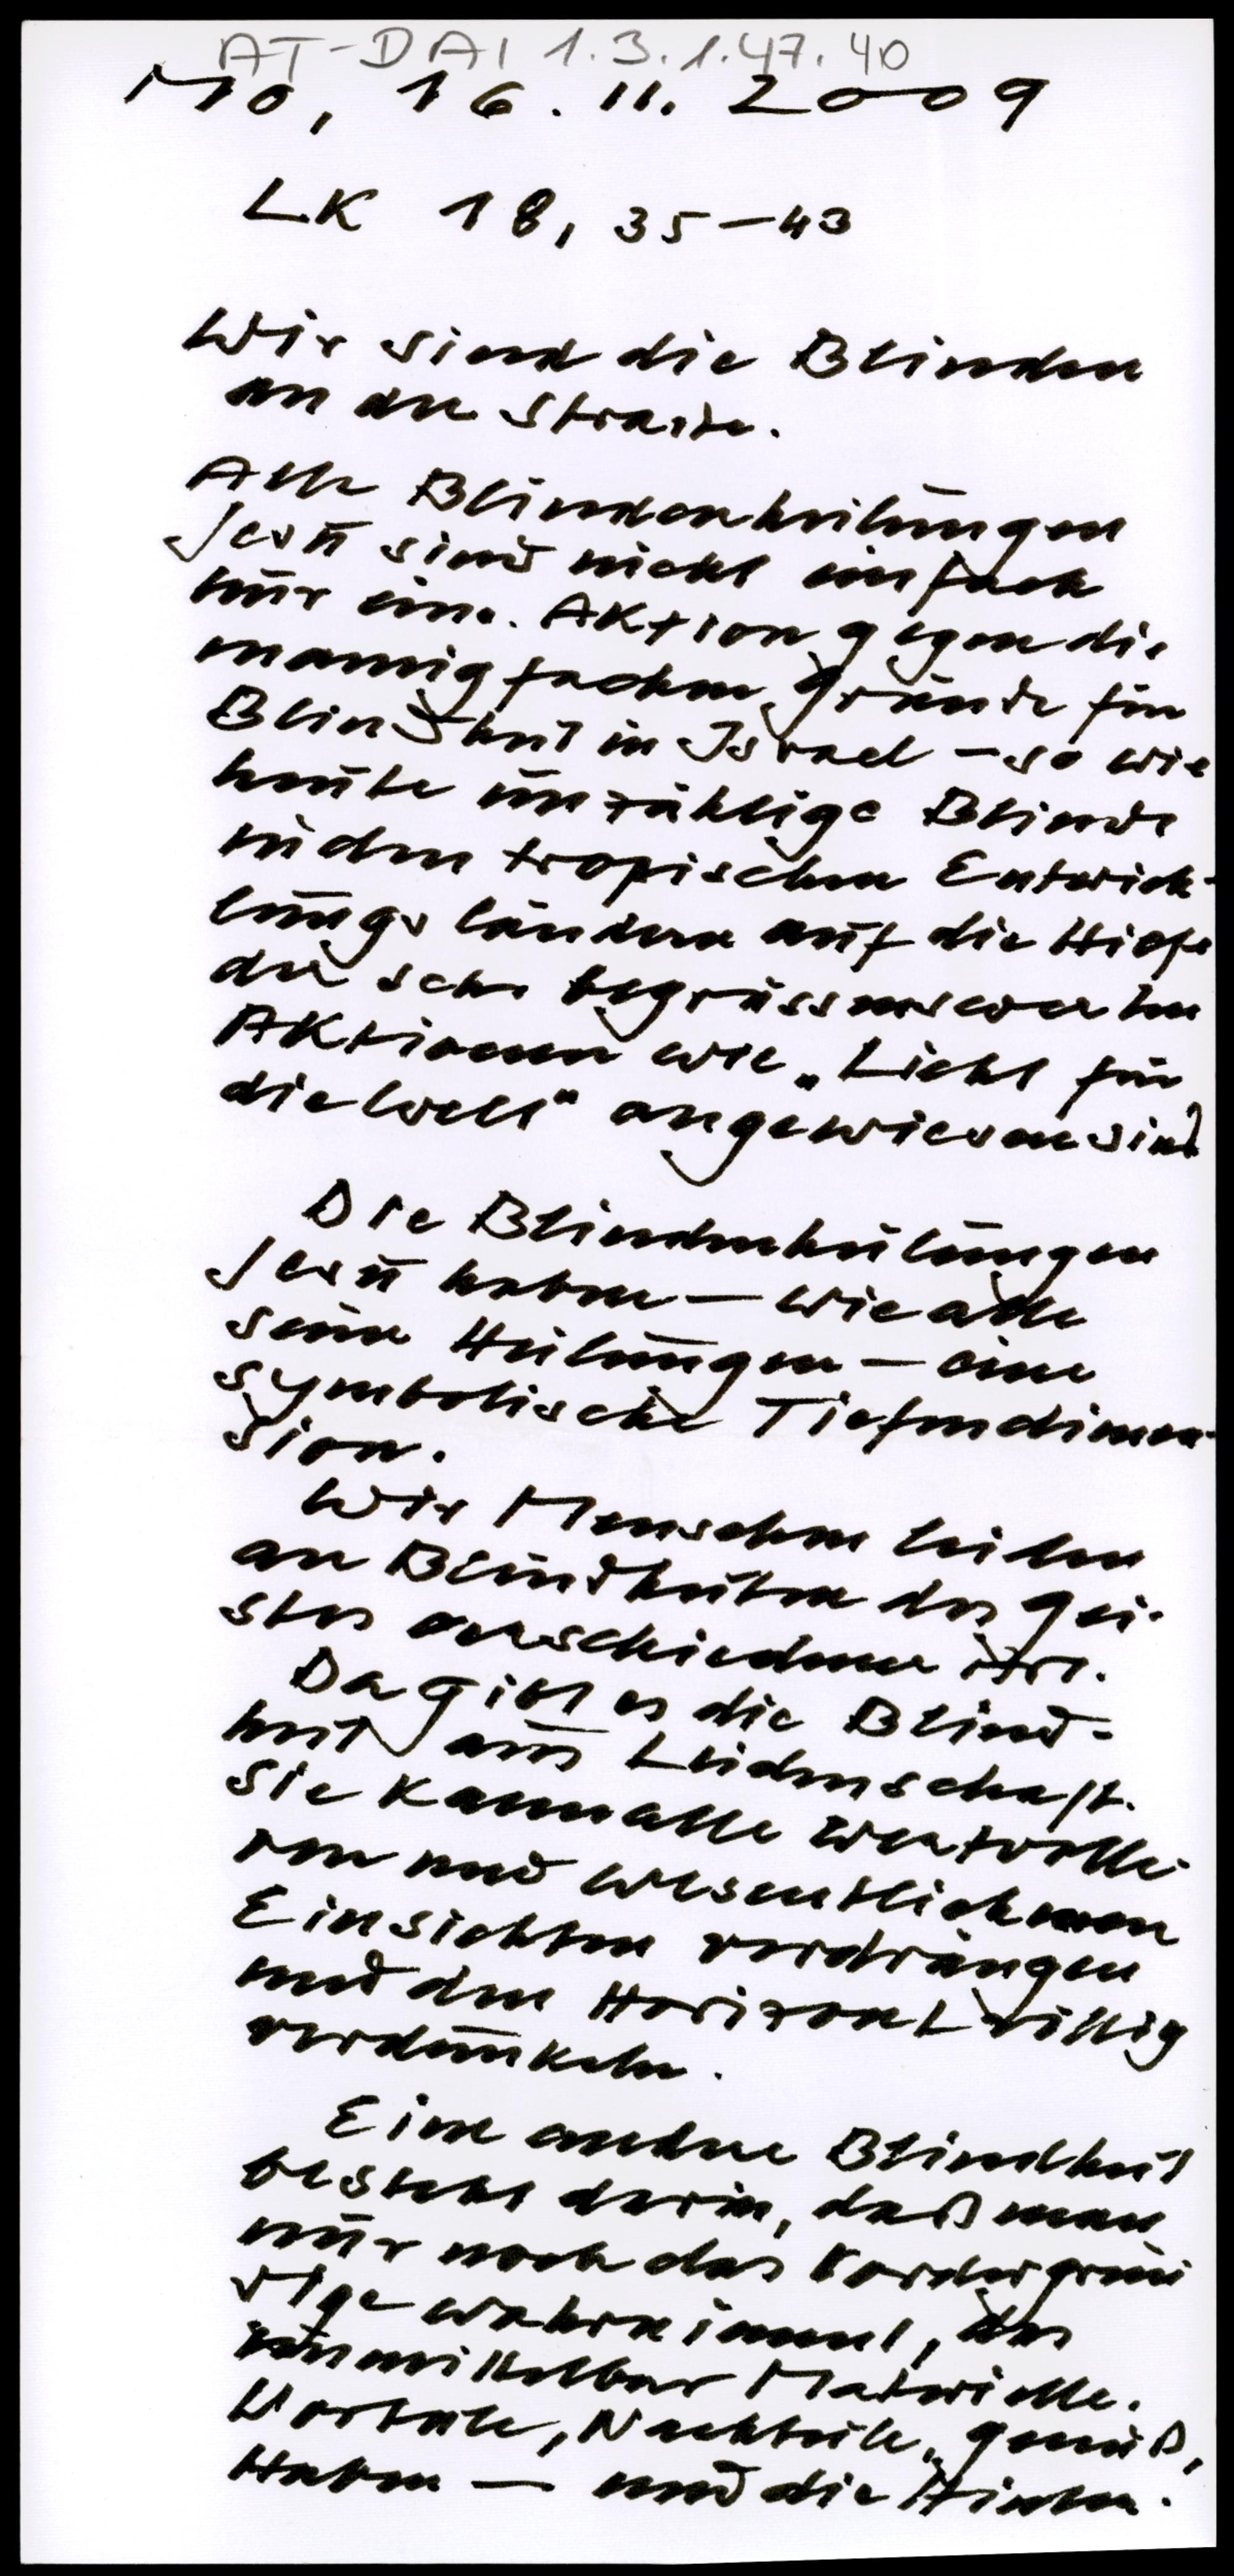 AT-DAI 1.3.1.47.40
Mo, 16. 11. 2009
LK 18, 35-43
Wir sind die Blinden
an der Straße.
Alle Blindenheilungen
Jesu sind nicht einfach
nur eine Aktion gegen die
mannigfachen Gründe für
Blindheit in Israel - so wie
heute unzählige Blinde
in den tropischen Entwick-
lungsländern auf die Hilfe
der sehr begrüssenswerten
Aktionen wie „Licht für
die Welt" angewiesen sind
Die Blindenheilungen
Jesu haben - wie alle
seine Heilungen - eine
symbolische Tiefendimen-
sion.
Wir Menschen leiden
an Blindheiten des Gei-
stes verschiedener Art.
Da gibt es die Blind-
heit aus Leidenschaft.
Sie kann alle wertvolle-
ren und wesentlicheren
Einsichten verdrängen
und den Horizont völlig
verdunkeln.
Eine andere Blindheit
besteht darin, daß man
nur noch das Vordergrün-
dige wahrnimmt, das
unmittelbar Materielle.
Vorteile, Nachteile, Genuß,
Haben - und die